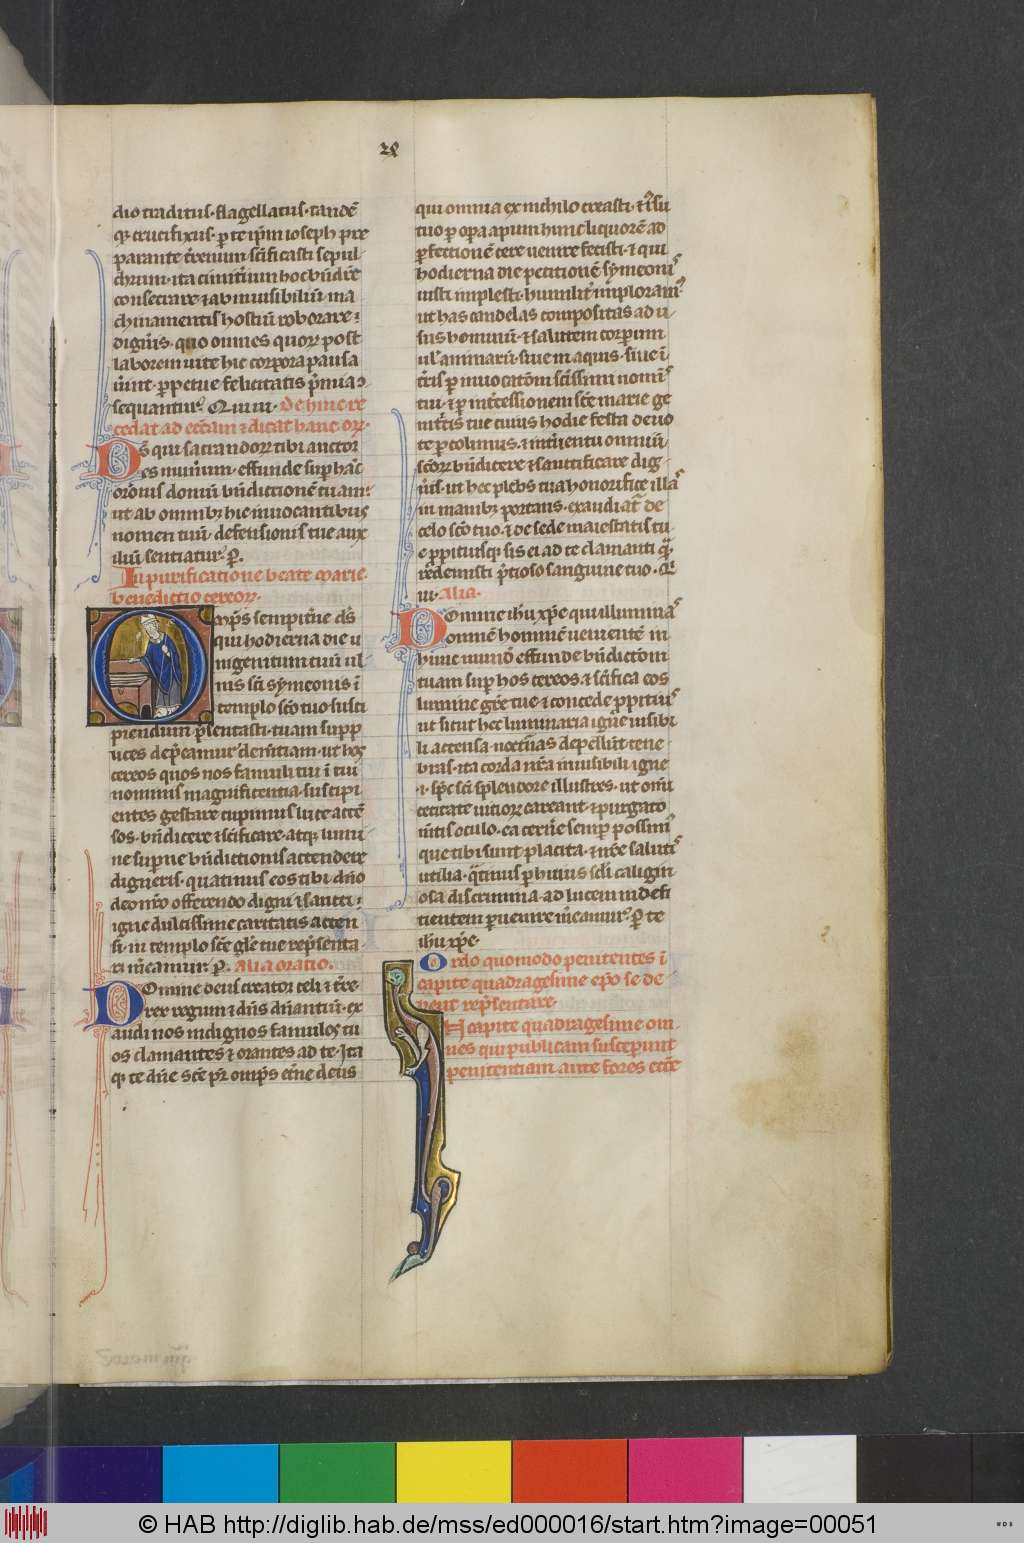 dio traditus · flagellatus · tandē
q̄ crucifixus · ꝑ te ip̄m ioseph pre
parante t̄renum sc̄ificasti sepul
chrum · ita cimit̄ium hoc bn̄dic̄re
consecrare ⁊ ab inuisibiliū ma
chinamentis hostiū roborare
digneris · quo omnes quoꝝ post
laborem uite hic corpora pausa
uerint · ꝑpetue felicitatis p̄mia ꝯ
sequantur · Qui ui · De hinc re
cedat ad ecc̄am ⁊ dicat hanc orōn ·
Ds̄ qui sacrandoꝝ tibi auctor
es munerum · effunde suꝑ hāc
orōnis domū bn̄dictionē tuam
ut ab omnibꝫ hic inuocantibus
nomen tuū · defensionis tue auxi
liū sentiatur · P̱.
In purificatione beate marie
benedictio cereoꝝ ·
Omp̄s sempitne ds̄
qui hodierna die u
nigenitum tuū ul
nis sc̄i symeonis ī
templo sc̄o tuo susci
piendum p̄sentasti · tuam supp
lices dep̄camur clem̄tiam · ut hos
cereos quos nos famuli tui ī tui
nominis magnificentia · suscipi
entes gestare cupimus luce accē
sos · bn̄dicere ⁊ sc̄ificare · atqꝫ lumi
ne superne bn̄dictionis accendere
digneris · quatinus eos tibi dn̄o
deo nr̄o offerendo digni ⁊ sancti
igne dulcissime caritatis accen
si · in templo sc̄e gl̄e tue rep̄senta
ri m̄eamur · P̱. Alia oratio.
Domine deus creator celi ⁊ t̄re ·
rex regum ⁊ dn̄s dn̄antiū · ex
audi nos indignos famulos tu
os clamantes ⁊ orantes ad te · Ita
qꝫ te dn̄e sc̄e pr̄ omp̄s et̄ne deus
qui omnia ex nichilo creasti · ⁊ iussu
tuo ꝑ oꝑa apum hunc liquorē ad
ꝑfectionē cere uenire fecisti · ⁊ qui
hodierna die petitionē symeonis
iusti implesti · humilit̄ imploramus
ut has candelas compositas ad u
sus hominū · ⁊ salutem corporum
ul̄ animarū · siue in aquis · siue ī
t̄ris ꝑ inuocatōem sc̄issimi nominis
tui · ⁊ ꝑ int̄cessionem sc̄e marie ge
nit̄cis tue cuius hodie festa deuo
te ꝑcolimus · ⁊ int̄uentu omniū
sc̄oꝝ bn̄dicere ⁊ sanctificare dig
n̄is · ut hec plebs tua honorifice illas
in manibꝫ portans · exaudiat̄ de
celo sc̄o tuo · ⁊ de sede maiestatis tu
e ꝓpitiusqꝫ sis ei ad te clamanti quā
redemisti p̄tioso sanguine tuo · Q
ui · Alia ·
Domine ih̄u xp̄e qui illuminas
omnē hominē uenientē in
hunc mundū effunde bn̄dictōem
tuam suꝑ hos cereos · ⁊ sc̄ifica eos
lumine gr̄e tue · ⁊ concede ꝓpitius
ut sicut hec luminaria igne uisibi
li accensa · nocturnas depellunt tene
bras · ita corda nr̄a inuisibili igne
·i· sp̄c sc̄i splendore illustres · ut omni
cecitate uicioꝝ careant · ⁊ purgato
mentis oculo · ea cern̄e semꝑ possimus
que tibi sunt placita · ⁊ nr̄e saluti
utilia · q̄tinus ꝑ huius scl̄i caligin
osa discrimina · ad lucem indefi
cientem ꝑuenire m̄eamur · Ꝑ te
ih̄u xp̄e ·
Ordo quomodo penitentes ī
capite quadragesime ep̄o se de
beat rep̄sentare ·
In capite quadragesime om
nes qui publicam susceperunt
penitentiam ante fores ecc̄e
© HAB http://diglib.hab.de/mss/ed000016/start.htm?image=00051